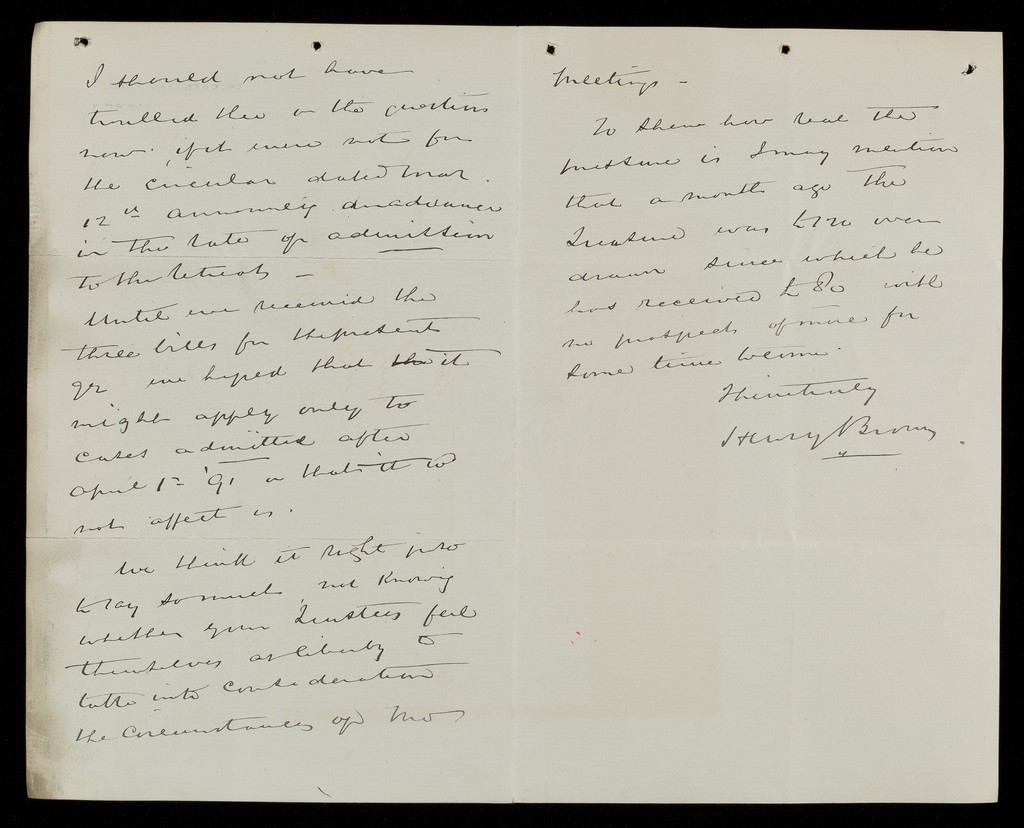 I should not have
troubled thee on the question
now if it were not for
the circular dated Mar.
12th announcing an advance
in the rate of admission
to the Retreat –
Until we received the
three bills for the present
qr we hoped that the it
might apply only to
cases admitted after
April 1st '91 or that it wd
not affect us.
We think it right just
to say so much, not knowing
whether your Trustees feel
themselves at liberty to
take into consideration
the circumstances of Mo
Meetings –
To show how real the
pressure is I may mention
that a month ago the
Treasurer was £120 over
drawn since which he
has received £80 with
no prospect of more for
some time to come.
Thine truly
Henry Brown